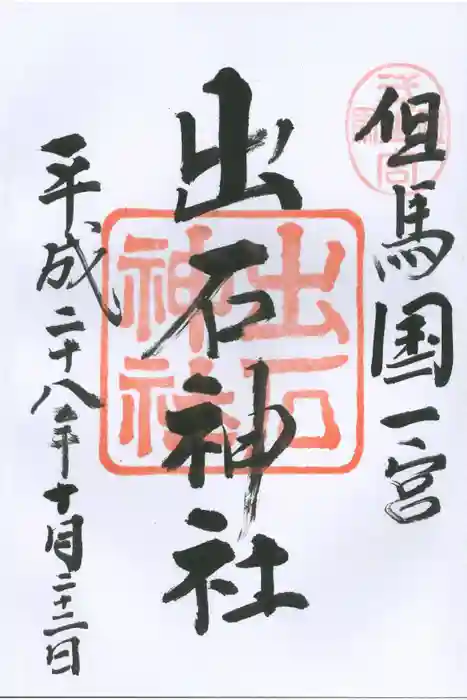 但馬国一宮
出石神社
出石神社
平成二十八年十月二十二日